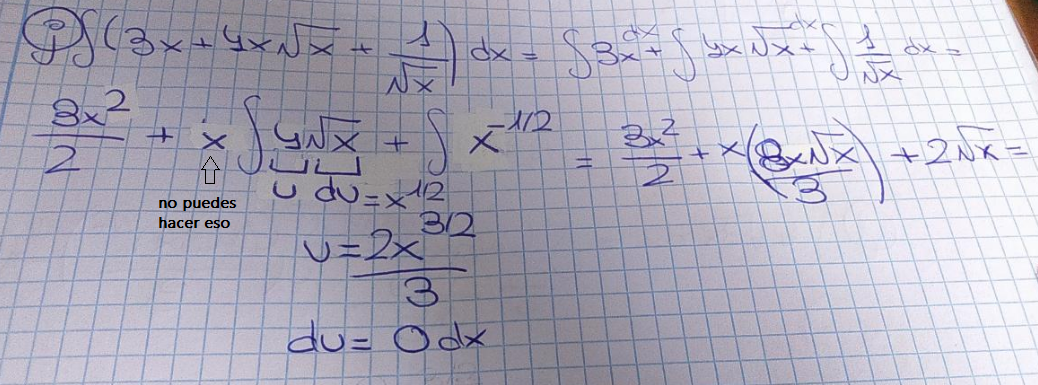 j) ∫(3x + 4x√x + 1/√x) dx = ∫3x dx + ∫4x√x dx + ∫1/√x dx =
3x²/2 + x∫4√x + ∫x^-1/2 = 3x²/2 + x(8x√x/3) + 2√x =
u dv = x^1/2
no puedes
hacer eso
v = 2x^3/2/3
du = 0dx